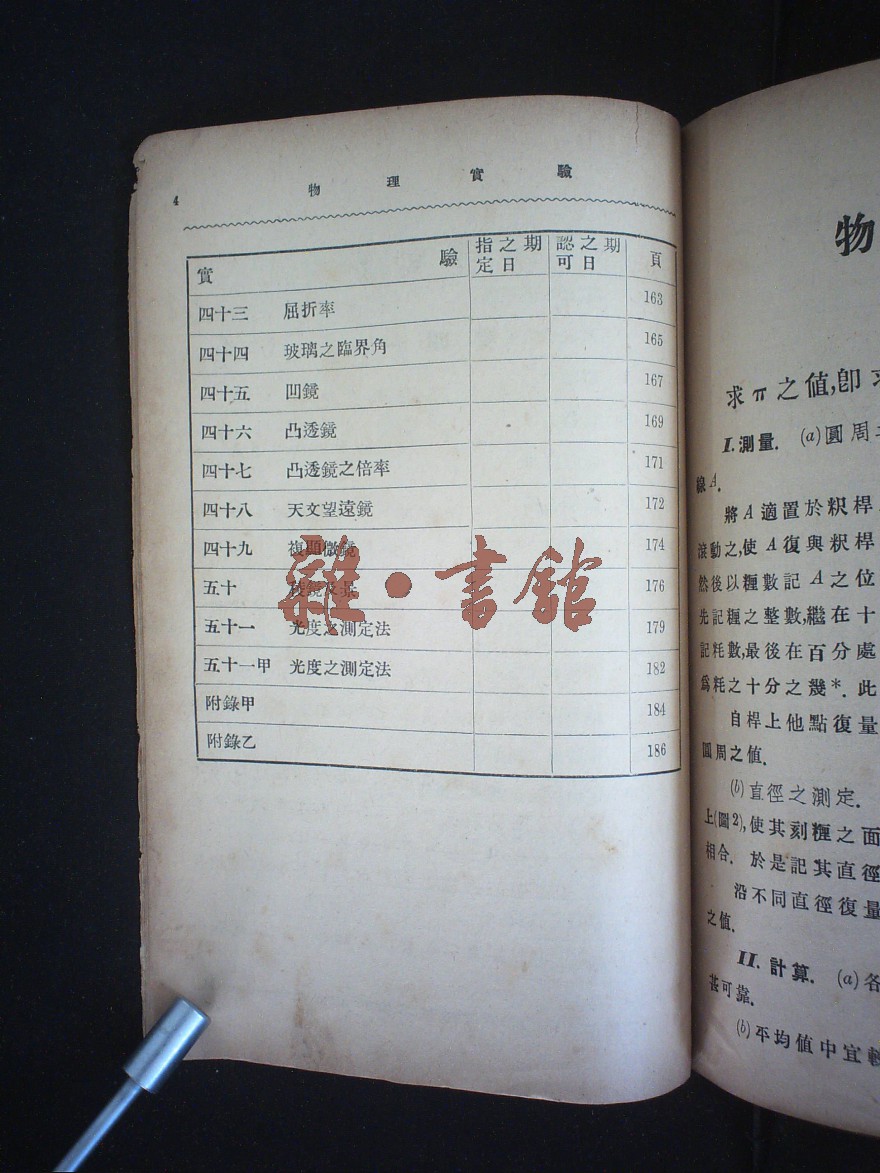 4 物理實驗
實驗 指定之日期 認可之日期 頁
四十三 屈折率 163
四十四 玻璃之臨界角 165
四十五 凹鏡 167
四十六 凸透鏡 169
四十七 凸透鏡之倍率 171
四十八 天文望遠鏡 172
四十九 複顯微鏡 174
五十 176
五十一 光度之測定法 179
五十一甲 光度之測定法 182
附錄甲 184
附錄乙 186
雜·書館
物
求π之値,卽
I.測量. (a)圓周
線A.
將A適置於釈桿
滾動之,使A復與釈桿
然後以糎數記A之位
先記糎之整數,繼在十
記粍數,最後在百分處
爲粍之十分之幾*. 此
自桿上他點復量
圓周之值.
(b)直徑之測定.
上(圖2),使其刻糎之面
相合. 於是記其直徑
沿不同直徑復量
之值.
II. 計算. (a)各
甚可靠.
(b)平均値中宜